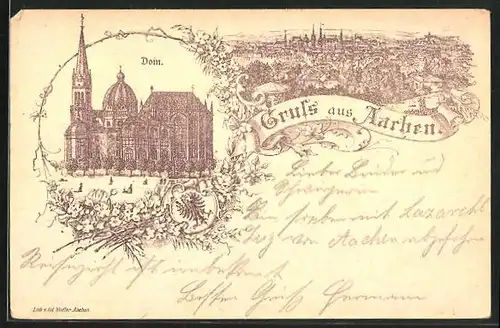 Dom.
Gruss aus Aachen.
Lieber Bruder und
Schwägerin
Bin soeben mit Lazareth
Zug von Aachen abgefahren
Reiseziel ist unbekannt
Besten Gruß Hermann
Aachen